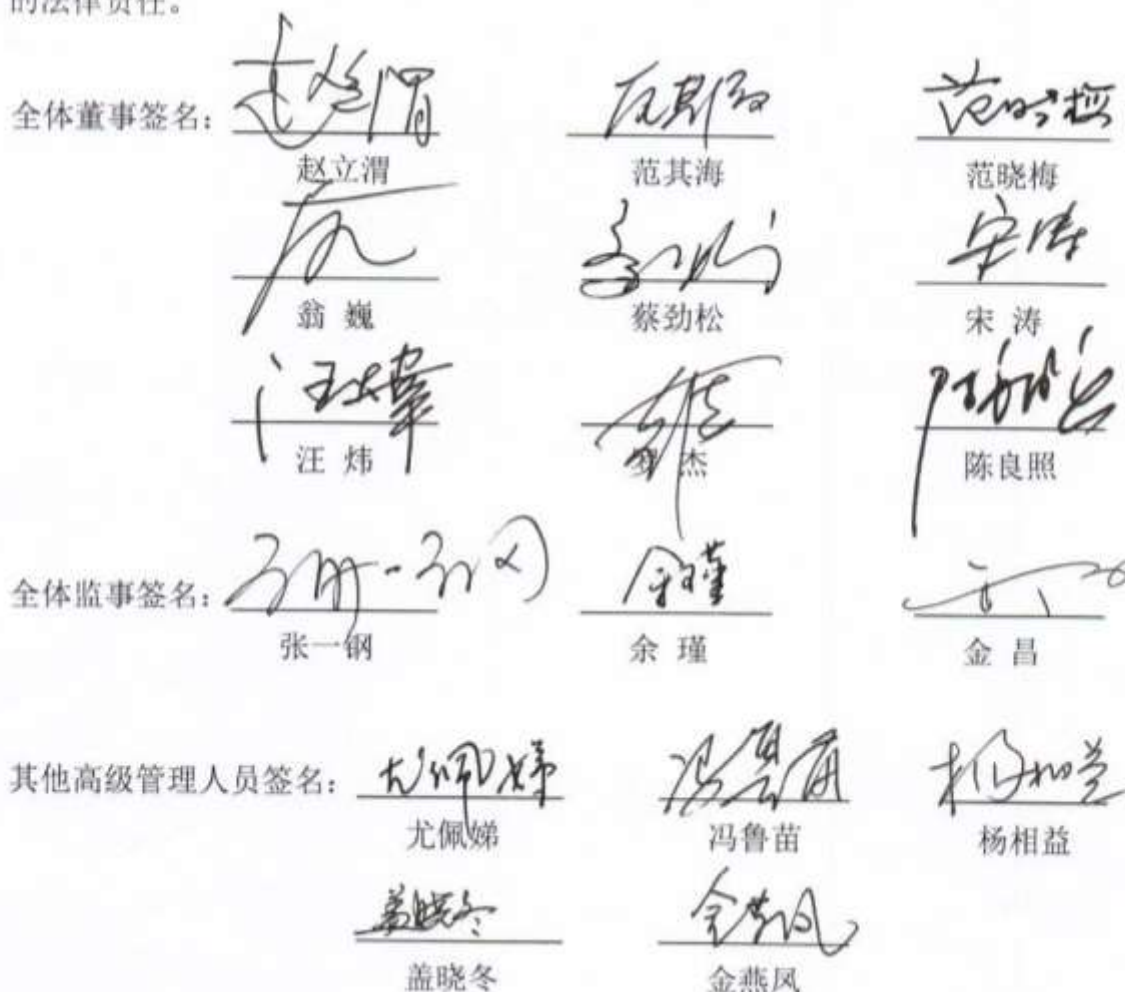 的法律责任。
全体董事签名：
赵立渭 范其海 范晓梅
翁 巍 蔡劲松 宋 涛
汪 炜 杰 陈良照
全体监事签名：
张一钢 余 瑾 金 昌
其他高级管理人员签名：
尤佩娣 冯鲁苗 杨相益
盖晓冬 金燕凤